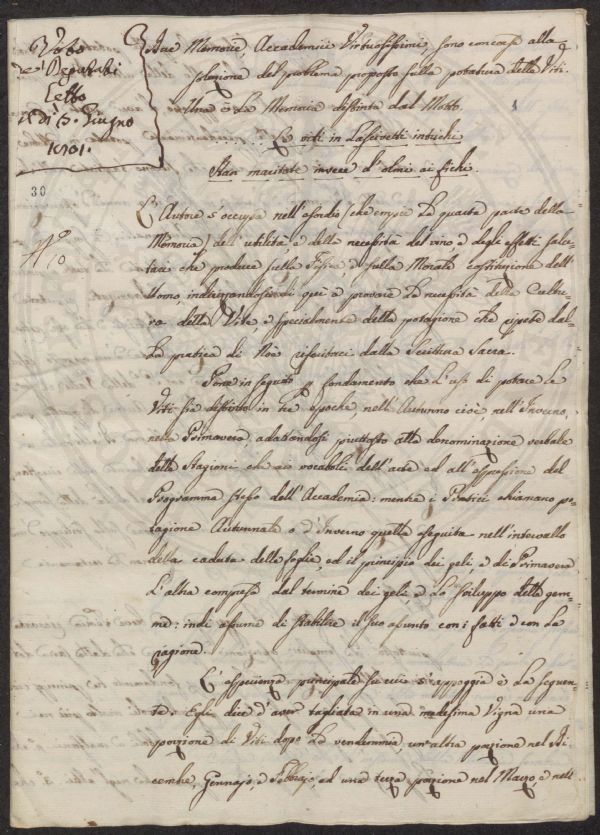 Voto
de' Deputati
Letto
a dì 3. Giugno
1801.
30
N°
10
Due Memorie, Accademici Virtuosissimi, sono concorse alla
soluzione del problema proposto sulla potatura delle Viti.
Una è la Memoria distinta dal Motto
1
Le viti in lascivetti intrichi
Stan maritate invece d'olmi ai fichi.
L'Autore s'occupa nell'esordio (che empie la quarta parte della
Memoria) dell'utilità e della necessità del vino e degli effetti salu-
tari che produce sulla Fisica, e sulla Morale costituzione dell'
Uomo, indirizzandosi di quì a provare la necessità della Cultu-
ra della Vite e specialmente della potagione che ripete dal-
la pratica di Noè riferitaci dalla Scrittura Sacra.
Pone in seguito p fondamento che l'uso di potare le
Viti sia distinto in tre epoche nell'Autunno cioè, nell'Inverno,
nella Primavera, adattandosi piuttosto alla denominazione verbale
delle Stagioni che ai vocaboli dell'arte ed all'espressione del
Programma stesso dell'Accademia: mentre i Pratici chiamano po-
tagione Autunnale o d'Inverno quella eseguita nell'intervallo
della caduta delle foglie, ed il principio dei geli, e di Primavera
l'altra compresa dal termine dei geli, e lo sviluppo delle gem-
me: indi assume di stabilire il suo assunto con i fatti e con la
ragione.
L'esperienza principale su cui s'appoggia è la seguen-
te. Egli dice d'aver tagliata in una medesima Vigna una
porzione di Viti dopo la vendemmia, un'altra porzione nel Di-
cembre, Gennajo, e Febbrajo, ed una terza porzione nel Marzo, e nell'